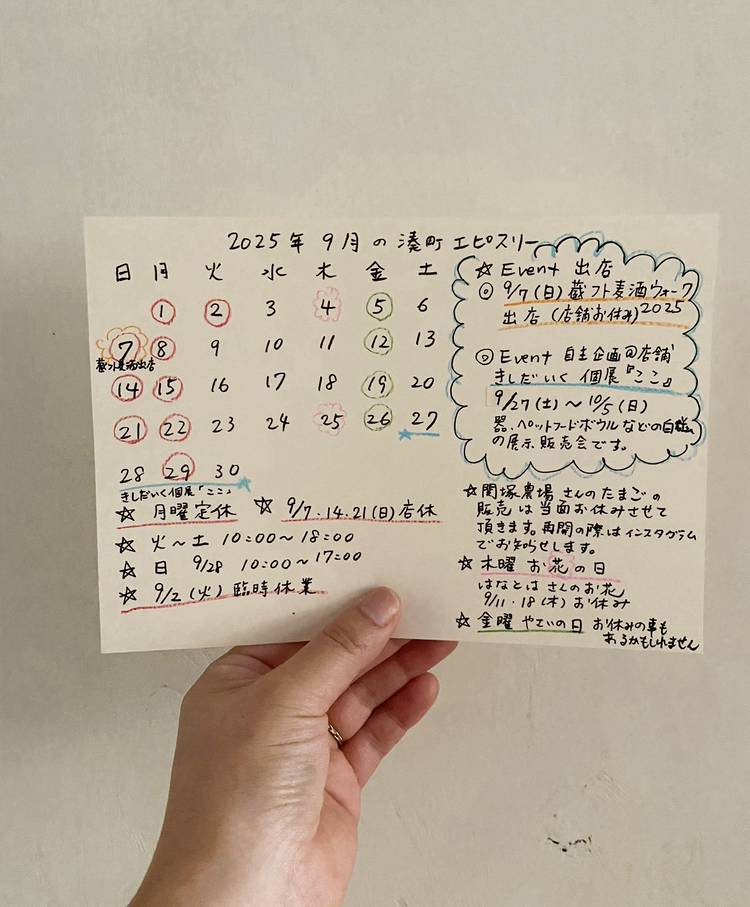 2025年 9月の湊町エピスリー
日 月 火 水 木 金 土
1 2 3 4 5 6
7 8 9 10 11 12 13
蔵フト麦酒出店
14 15 16 17 18 19 20
21 22 23 24 25 26 27
28 29 30
きしだいく個展「ここ」
☆ 月曜定休 ☆ 9/7.14.21(日)店休
☆ 火〜土 10:00〜18:00
☆ 日 9/28 10:00〜17:00
☆ 9/2(火)臨時休業
☆ Event 出店
◎ 9/7(日)蔵フト麦酒ウォーク2025
出店(店舗お休み)
◎ Event 自主企画@店舗
きしだいく 個展『ここ』
9/27(土)〜10/5(日)
器、ペットフードボウルなどの
の展示販売会です。
☆関塚農場さんのたまごの
販売は当面お休みさせて
頂きます。再開の際はインスタグラム
でお知らせします。
☆ 木曜 お花の日
はなとはさんのお花
9/11.18(木)お休み
☆ 金曜 やさいの日 お休みの事も
あるかもしれません